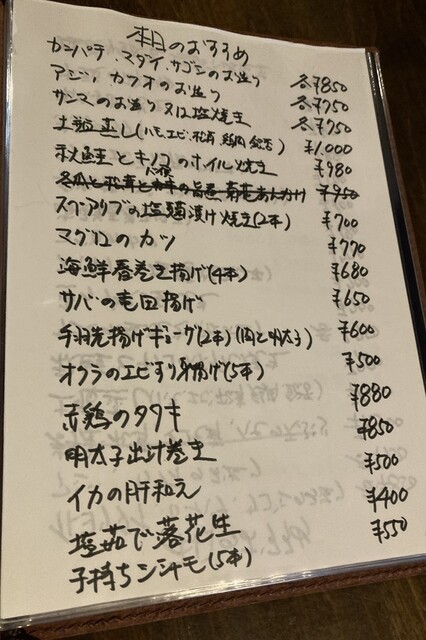 本日のおすすめ
カンパチ、マダイ、サゴシのお造り 各¥850
アジ、カツオのお造り 各¥750
サンマのお造り 又は塩焼き 各¥750
土瓶蒸し(ハモ、エビ、松茸、鶏肉、銀杏) ¥1,000
秋鮭とキノコのホイル焼き ¥980
冬瓜と松茸と の旨煮 菊花あんかけ ¥950
スペアリブの塩麹漬け焼き(2本) ¥700
マグロのカツ ¥770
海鮮春巻き揚げ(4本) ¥680
サバの竜田揚げ ¥650
手羽先揚げギョーザ(2本)(肉と明太子) ¥600
オクラのエビすり身揚げ(5本) ¥500
赤鶏のタタキ ¥880
明太子出汁巻き ¥850
イカの肝和え ¥500
塩茹で落花生 ¥400
子持ちシシャモ(5本) ¥550